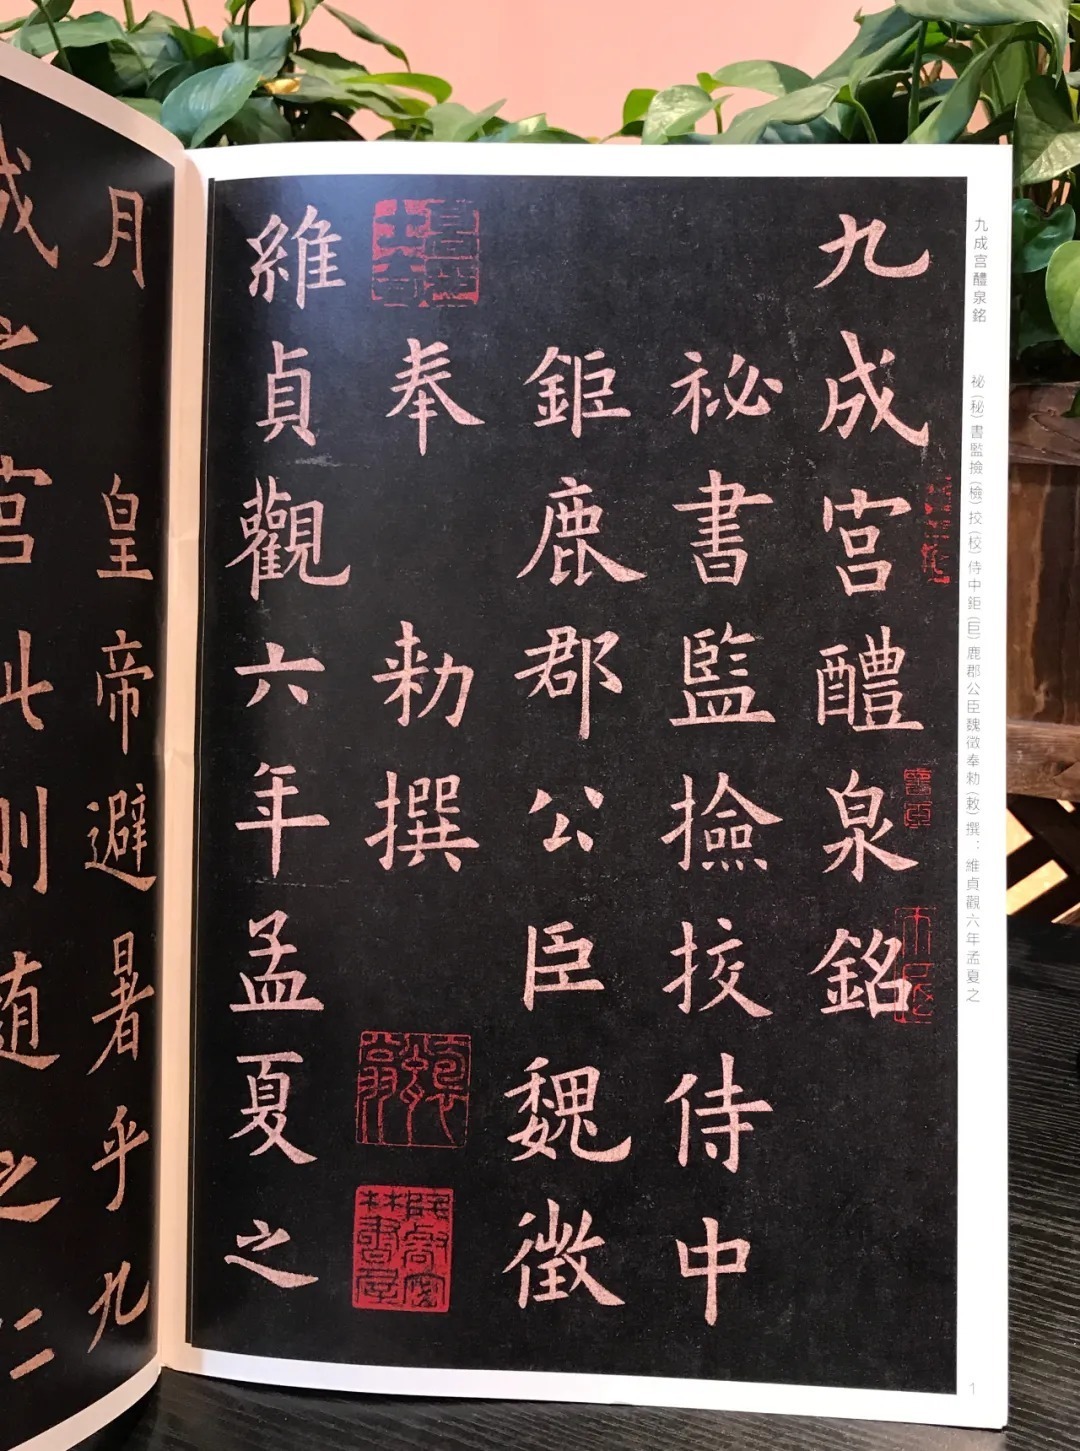 九成宮醴泉銘
祕書監撿挍侍中
鉅鹿郡公臣魏徵
奉 勅撰
維貞觀六年孟夏之
月 皇帝避暑乎九
成之宮此則隨之仁
九成宮醴泉銘
祕(秘)書監撿(檢)挍(校)侍中鉅(巨)鹿郡公臣魏徵奉勅(敕)撰：維貞觀六年孟夏之
1